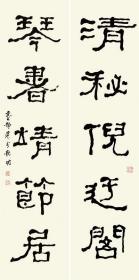 清秘倪迂閣
琴書靖節居